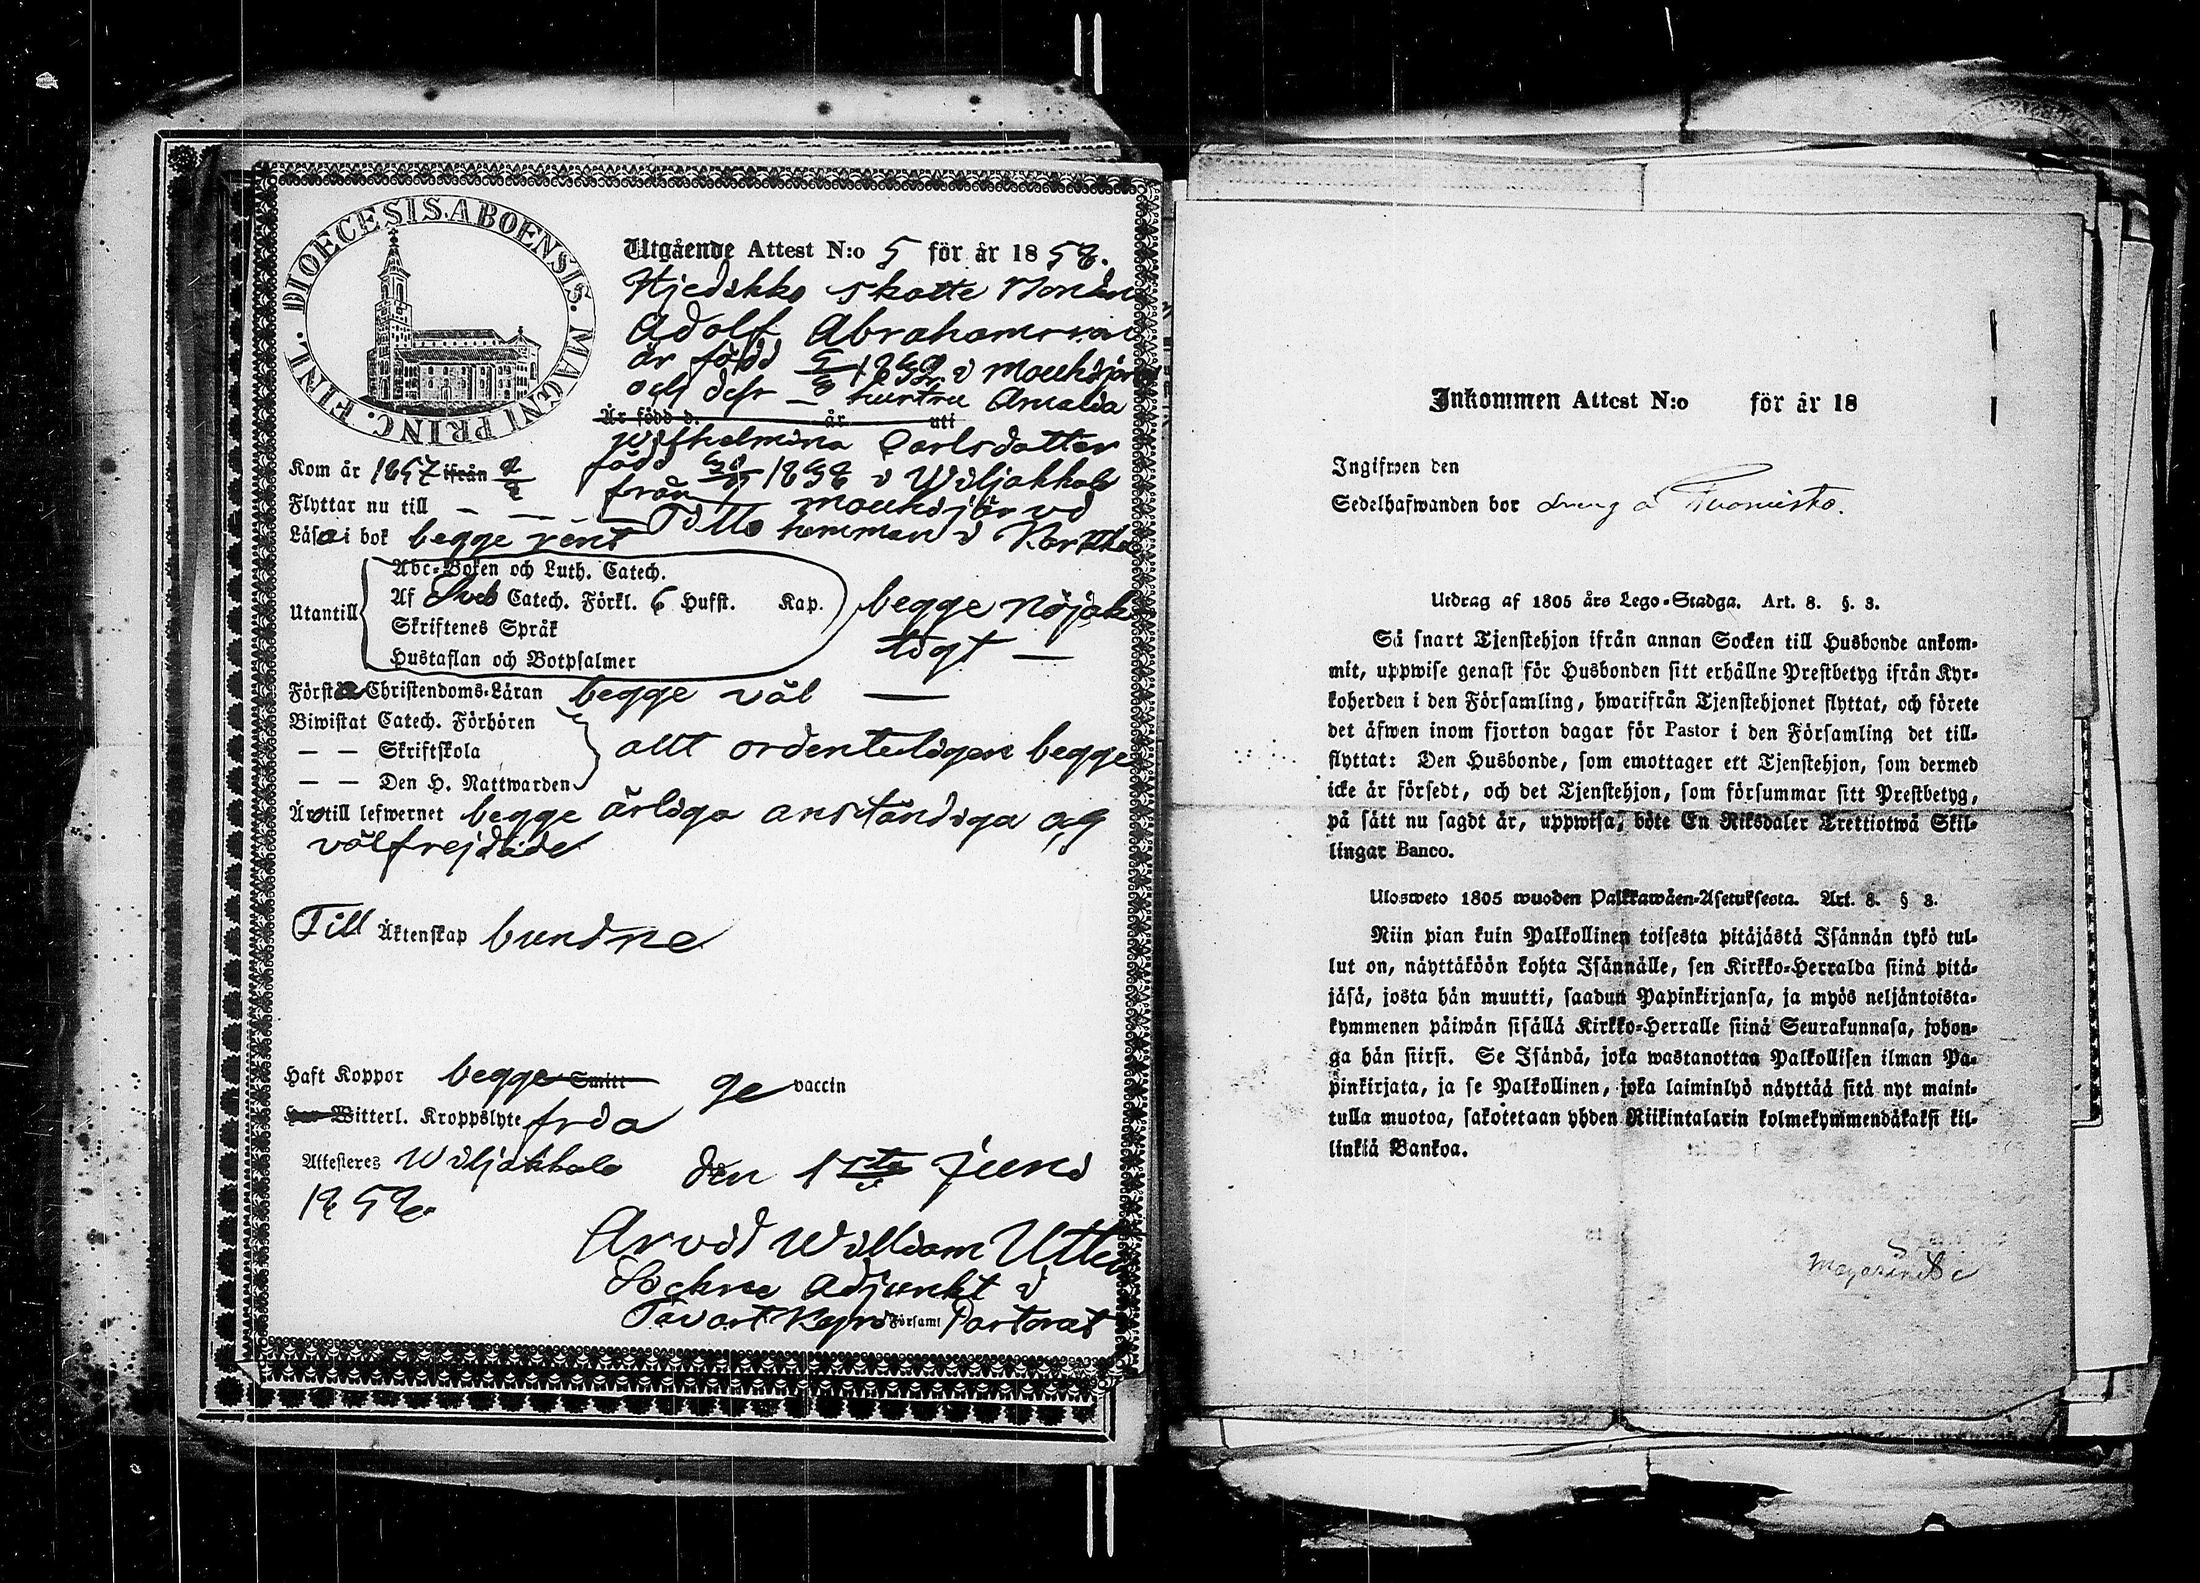 DIOECESIS. ABOENSIS. MAGNI PRINC. FINL.
Utgående Attest N:o 5 för år 1858.
Hjedikko skatte Bonden
Adolf Abrahamsson
är född 5/6 1832 i Mouhijärvi
och dess hustru Amalia
Är född d. år uti
Wilhelmina Carlsdotter
född 1838 i Wiljakkala
Kom år 1857 ifrån
från Mouhijärvi
Flyttar nu till — — — Tillo hemman i Karkku
Läsa i bok begge rent
Utantill
Abc-Boken och Luth. Catech.
Af Sveb Catech. Förkl. 6 Hufst. Kap.
Skriftenes Språk
Hustaflan och Botpsalmer
begge nöjak
tigt —
Förstå Christendoms-Läran begge väl —
Biwistat Catech. Förhören
— — Skriftskola
— — Den H. Nattwarden
allt ordenteligen begge
Äro till lefwernet begge ärliga anständiga og
välfrejdade
Till Äktenskap bundne
Haft Koppor begge Smitt ge vaccin
har Witterl. Kroppslyte fria
Attesteres Wiljakkala den 1sta Juni
1858.
Arvid William
Sockne Adjunkt i
Tavast Kyro Församl Pastorat
Inkommen Attest N:o för år 18
Ingifwen den
Sedelhafwanden bor dräng å Tuomisto.
Utdrag af 1805 års Lego-Stadga. Art. 8. §. 3.
Så snart Tjenstehjon ifrån annan Socken till Husbonde ankom-
mit, uppwise genast för Husbonden sitt erhållne Prestbetyg ifrån Kyr-
koherden i den Församling, hwarifrån Tjenstehjonet flyttat, och förete
det äfwen inom fjorton dagar för Pastor i den Församling det till-
flyttat: Den Husbonde, som emottager ett Tjenstehjon, som dermed
icke är försedt, och det Tjenstehjon, som försummar sitt Prestbetyg,
på sätt nu sagdt är, uppwisa, böte En Riksdaler Trettiotwå Skil-
lingar Banco.
Ulosweto 1805 wuoden Palkkawäen-Asetuksesta. Art. 8. § 3.
Niin pian kuin Palkollinen toisesta pitäjästä Isännän tykö tul-
lut on, näyttäköön kohta Isännälle, sen Kirkko-Herralda siinä pitä-
jäsä, josta hän muutti, saadun Papinkirjansa, ja myös neljäntoista-
kymmenen päiwän sisällä Kirkko-Herralle siinä Seurakunnasa, johon-
ga hän siirsi. Se Isändä, joka wastanottaa Palkollisen ilman Pa-
pinkirjata, ja se Palkollinen, joka laiminlyö näyttää sitä nyt maini-
tulla muotoa, sakotetaan yhden Riikintalarin kolmekymmendäkaksi kil-
linkiä Bankoa.